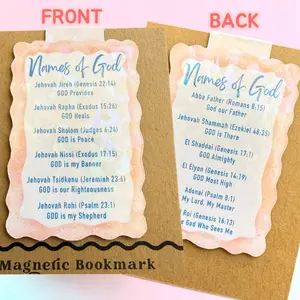 FRONT
Names of God
Jehovah Jireh (Genesis 22:14)
GOD Provides
Jehovah Rapha (Exodus 15:26)
GOD Heals
Jehovah Shalom (Judges 6:24)
GOD is Peace
Jehovah Nissi (Exodus 17:15)
GOD is my Banner
Jehovah Tsidkenu (Jeremiah 23:6)
GOD is our Righteousness
Jehovah Rohi (Psalm 23:1)
GOD is my Shepherd
Magnetic Bookmark
BACK
Names of God
Abba Father (Romans 8:15)
God our Father
Jehovah Shammah (Ezekiel 48:35)
GOD is There
El Shaddai (Genesis 17:1)
GOD Almighty
El Elyon (Genesis 14:19)
GOD Most High
Adonai (Psalm 8:1)
My Lord, My Master
Roi (Genesis 16:13)
God Who Sees Me